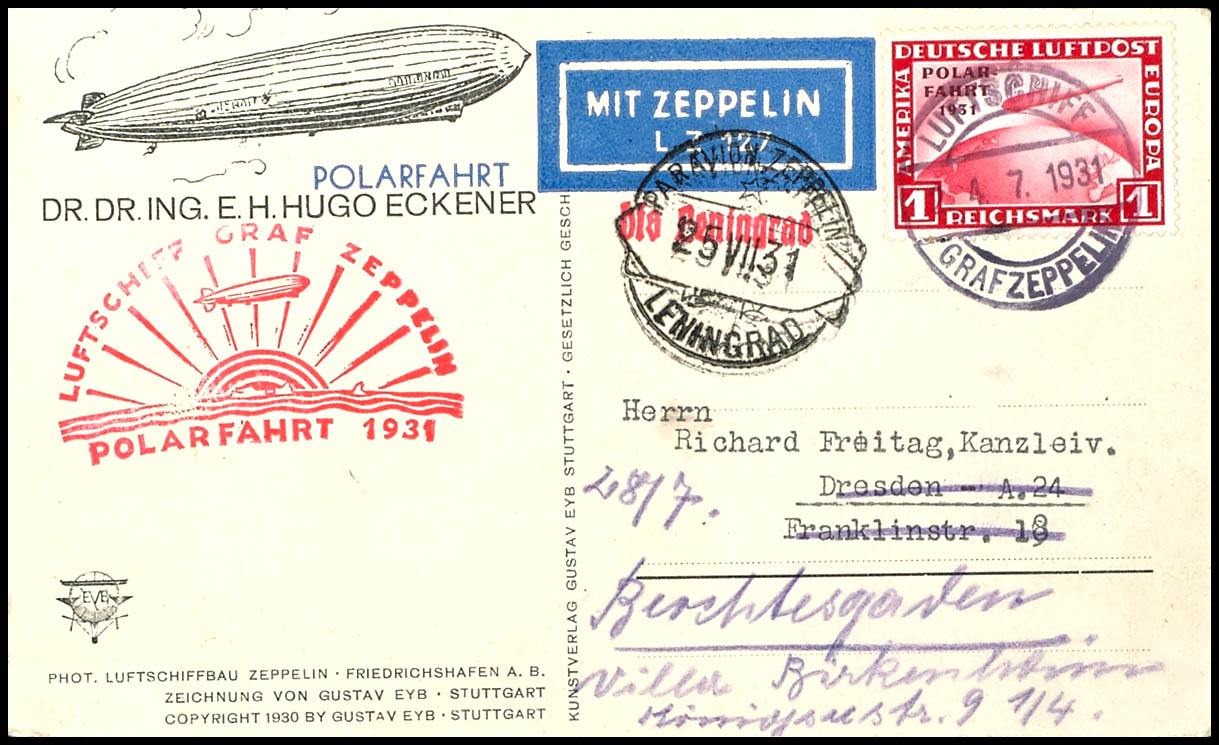 POLARFAHRT
DR. DR. ING. E. H. HUGO ECKENER
LUFTSCHIFF GRAF ZEPPELIN
POLARFAHRT 1931
EYB
PHOT. LUFTSCHIFFBAU ZEPPELIN · FRIEDRICHSHAFEN A. B.
ZEICHNUNG VON GUSTAV EYB · STUTTGART
COPYRIGHT 1930 BY GUSTAV EYB · STUTTGART
KUNSTVERLAG GUSTAV EYB STUTTGART · GESETZLICH GESCH
MIT ZEPPELIN
L.Z. 127
PAR AVION ZEPPELIN
bis Leningrad
25 VII 31
LENINGRAD
DEUTSCHE LUFTPOST
AMERIKA
EUROPA
POLAR-
FAHRT
1931
1 REICHSMARK 1
LUFTSCHIFF
4. 7. 1931
GRAF ZEPPELIN
Herrn
Richard Freitag, Kanzleiv.
28/7.
Dresden - A.24
Franklinstr. 18
Berchtesgaden
Villa
Königsseestr. 9 1/4.